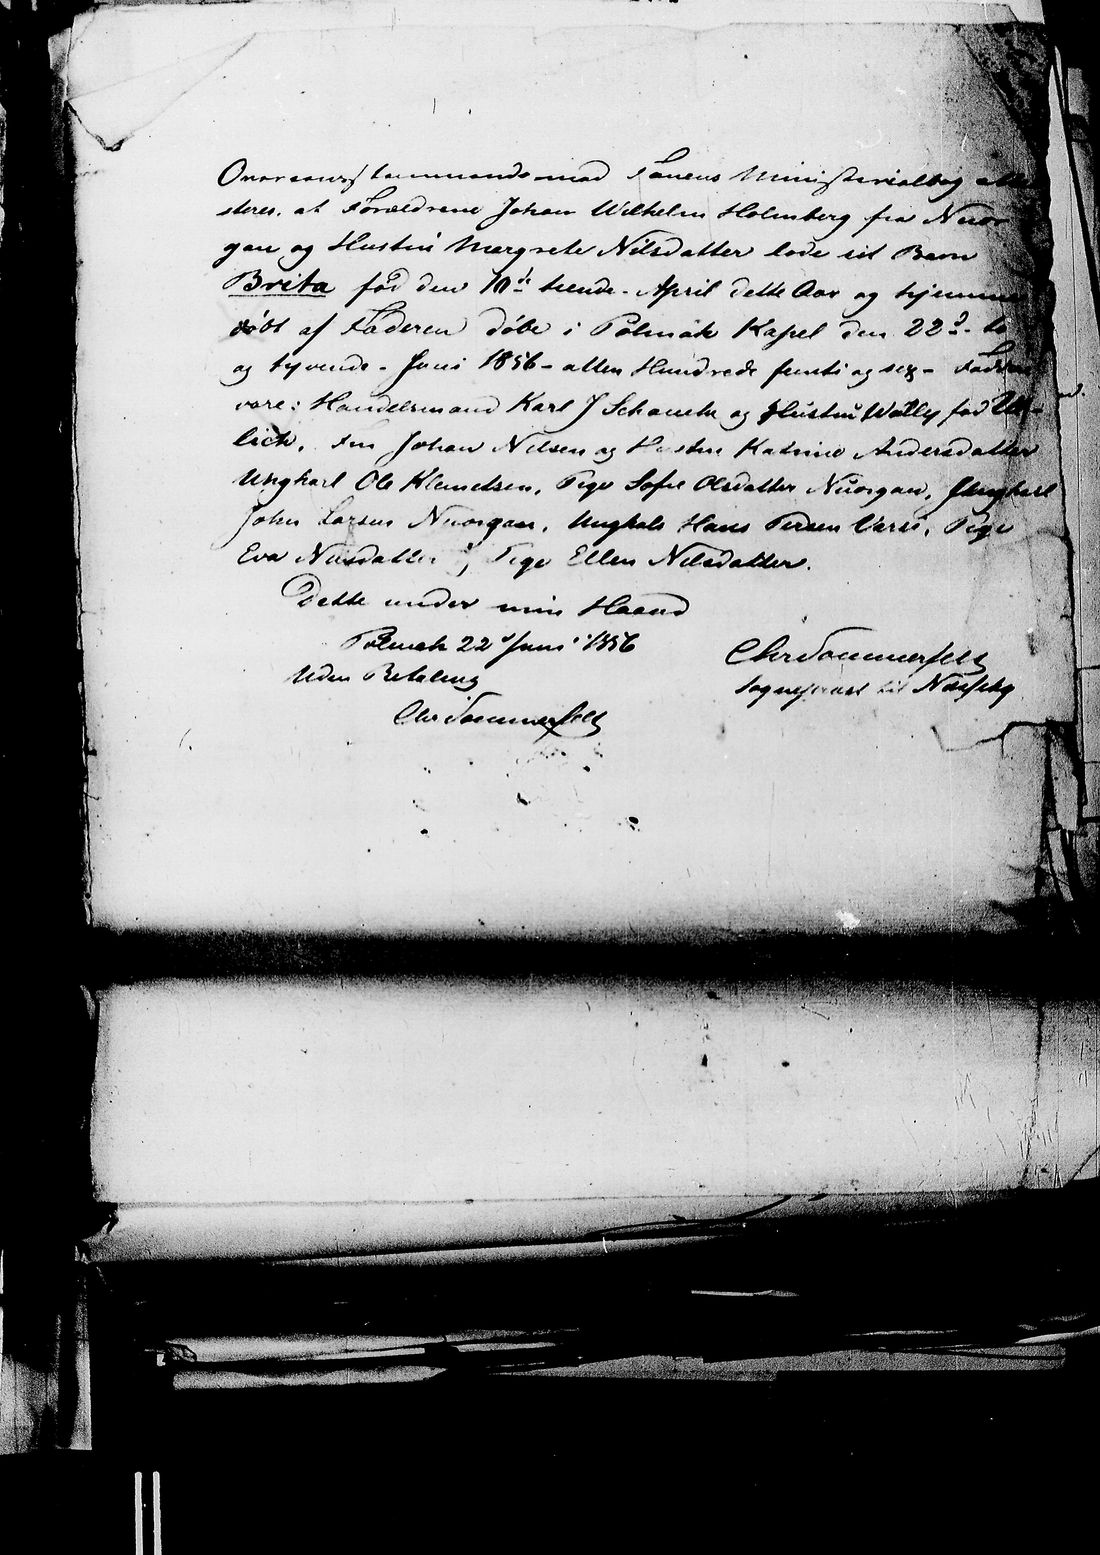 Overeensstemmende med Sanens Ministerialbog atte
steres, at Forældrene Johan Wilhelm Holmberg fra Nuor
gan og Hustru Margrete Nilsdatter lode sit Barn
Brita fød den 10de tiende - April dette Aar og hjemme
døbt af Faderen døbe i Polmak Kapel den 22d - to
og tyvende - Juni 1856 - atten Hundrede femti og sex - Faddere
vare: Handelsmand Karl J Schanche og Hustru Wally fød Ul-
lich, Johan Nilsen og Hustru Katrine Andersdatter
Ungkarl Ole Klemetsen, Pige Sofie Olsdatter Nuorgan, Ungkarl
John Larsen Nuorgan, Ungkarl Hans Persen Varsi, Pige
Eva Nilsdatter, Pige Ellen Nilsdatter.
Dette under min Haand
Polmak 22d Juni 1856
Chr Sommerfelt
Uden Betaling
Sognepræst til Næsseby
Chr Sommerfelt